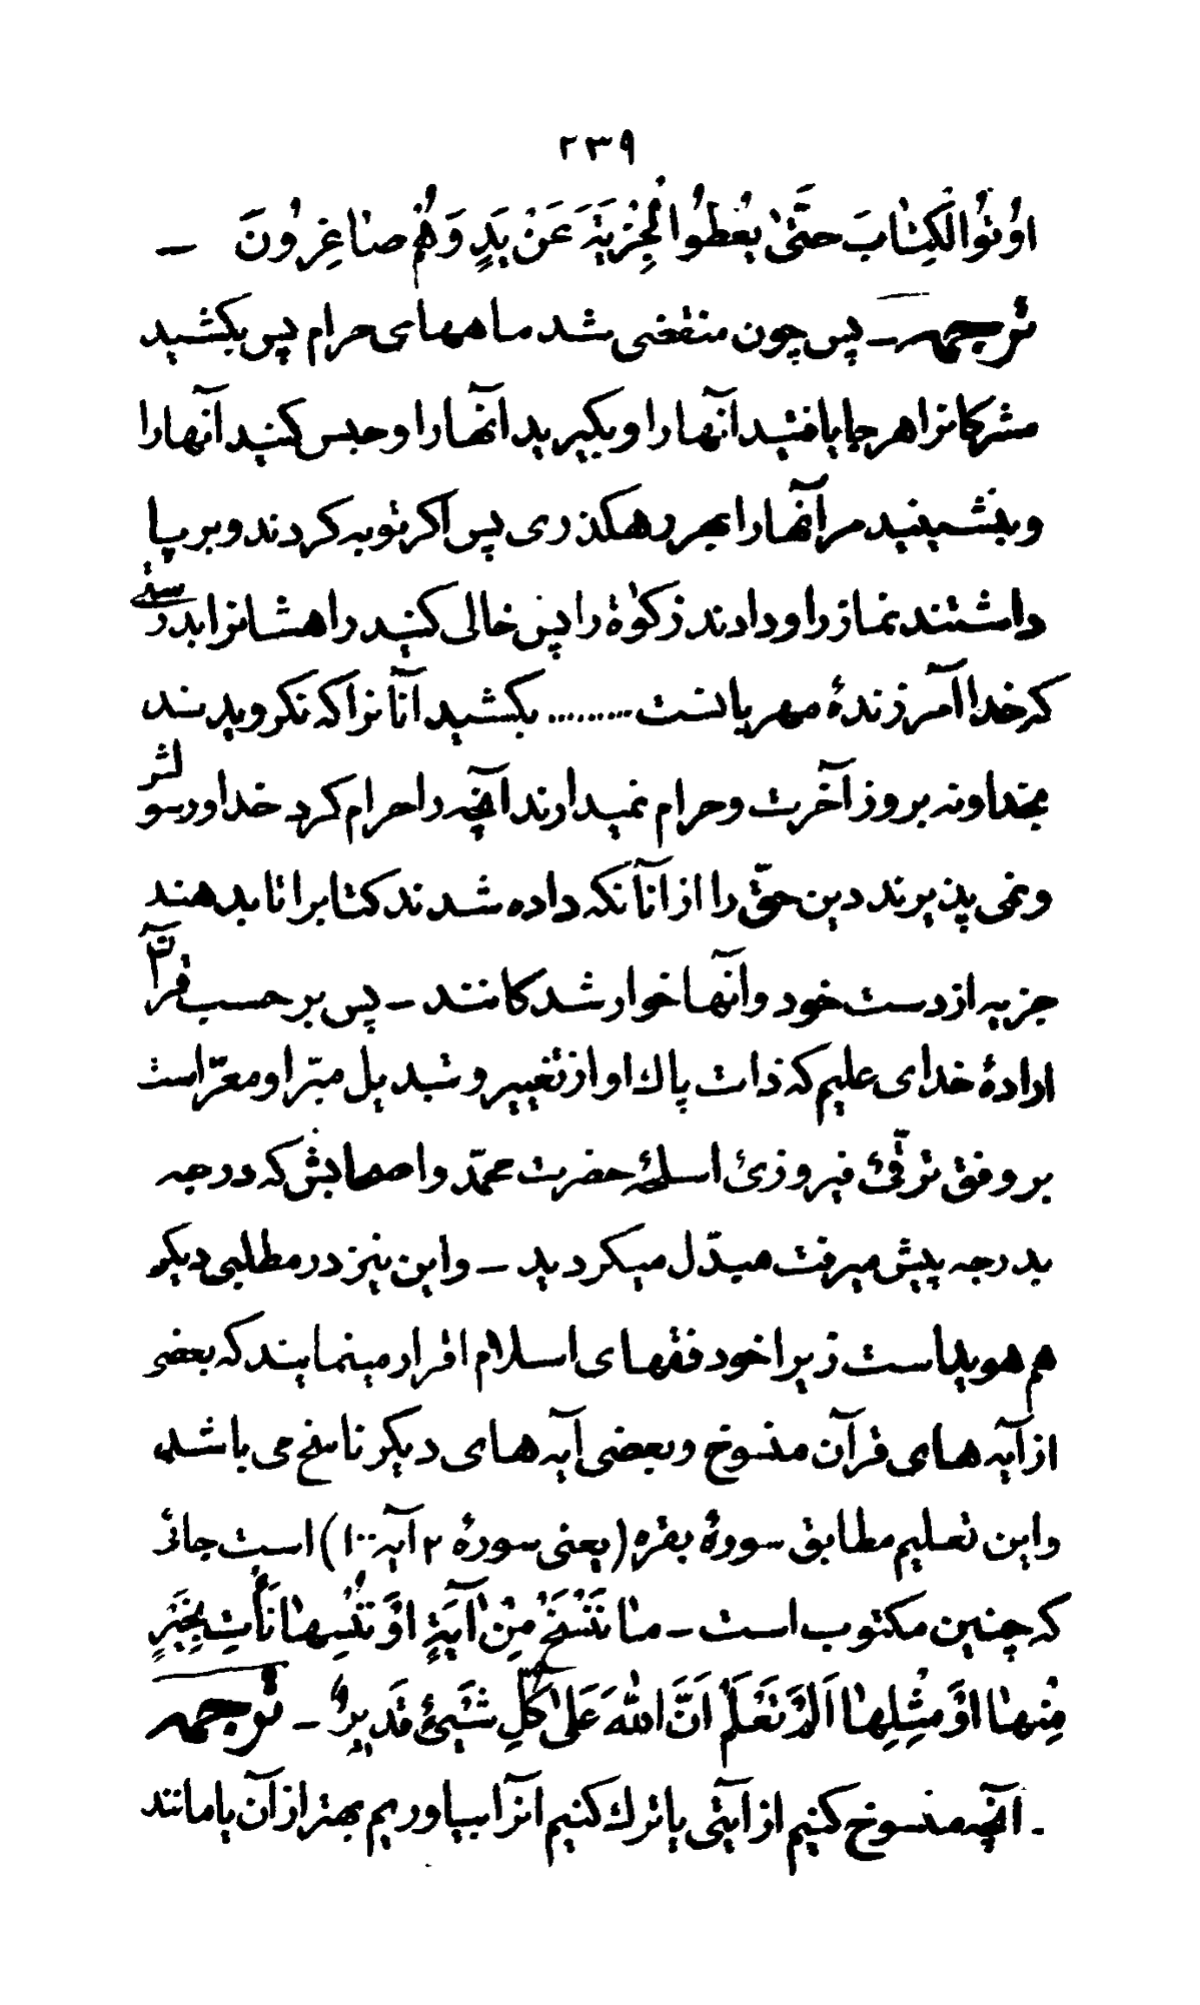 ۲۳۹
اُوتُوا الْكِتٰابَ حَتّىٰ يُعْطُوا الْجِزْيَةَ عَنْ يَدٍ وَهُمْ صٰاغِرُونَ —
ترجمه — پس چون منقضی شد ماههای حرام پس بکشید
مشرکانرا هر جا یافتید آنها را و بگیرید آنها را و حبس کنید آنها را
و بنشینید مر آنها را بهر رهگذری پس اگر توبه کردند و بر پا
داشتند نماز را و دادند زکوٰة را پس خالی کنید راهشانرا بدرستی
که خدا آمرزندهٔ مهربانست ......... بکشید آنانرا که نگرویدند
بخدا و نه بروز آخرت و حرام نمیدارند آنچه را حرام کرد خدا و رسولش
و نمی پذیرند دین حقّ را از آنانکه داده شدند کتابرا تا بدهند
جزیه از دست خود و آنها خوار شدکانند — پس بر حسب قرآن
ارادهٔ خدای علیم که ذات پاك او از تغییر و تبدیل مبرّا و معرّاست
بر وفق ترقّیٔ فیروزیٔ اسلحهٔ حضرت محمّد و اصحابش که درجه
بدرجه پیش میرفت مبدّل میگردید — و این نیز در مطلبی دیگر
هم هویداست زیرا خود فقهای اسلام اقرار مینمایند که بعضی
از آیه های قرآن منسوخ و بعضی آیه های دیگر ناسخ می باشد
و این تعلیم مطابق سورهٔ بقره (یعنی سورهٔ ۲ آیه ۱۰۰) است جائز
که چنین مکتوب است — مٰا نَنْسَخْ مِنْ آيَةٍ اَوْ نُنْسِهٰا نَأْتِ بِخَيْرٍ
مِنْهٰا اَوْ مِثْلِهٰا اَلَمْ تَعْلَمْ اَنَّ اللّٰهَ عَلىٰ كُلِّ شَيْئٍ قَدِيرٌ — ترجمه
. آنچه منسوخ کنیم از آیتی یا ترك کنیم آنرا بیاوریم بهتر از آن یا مانند